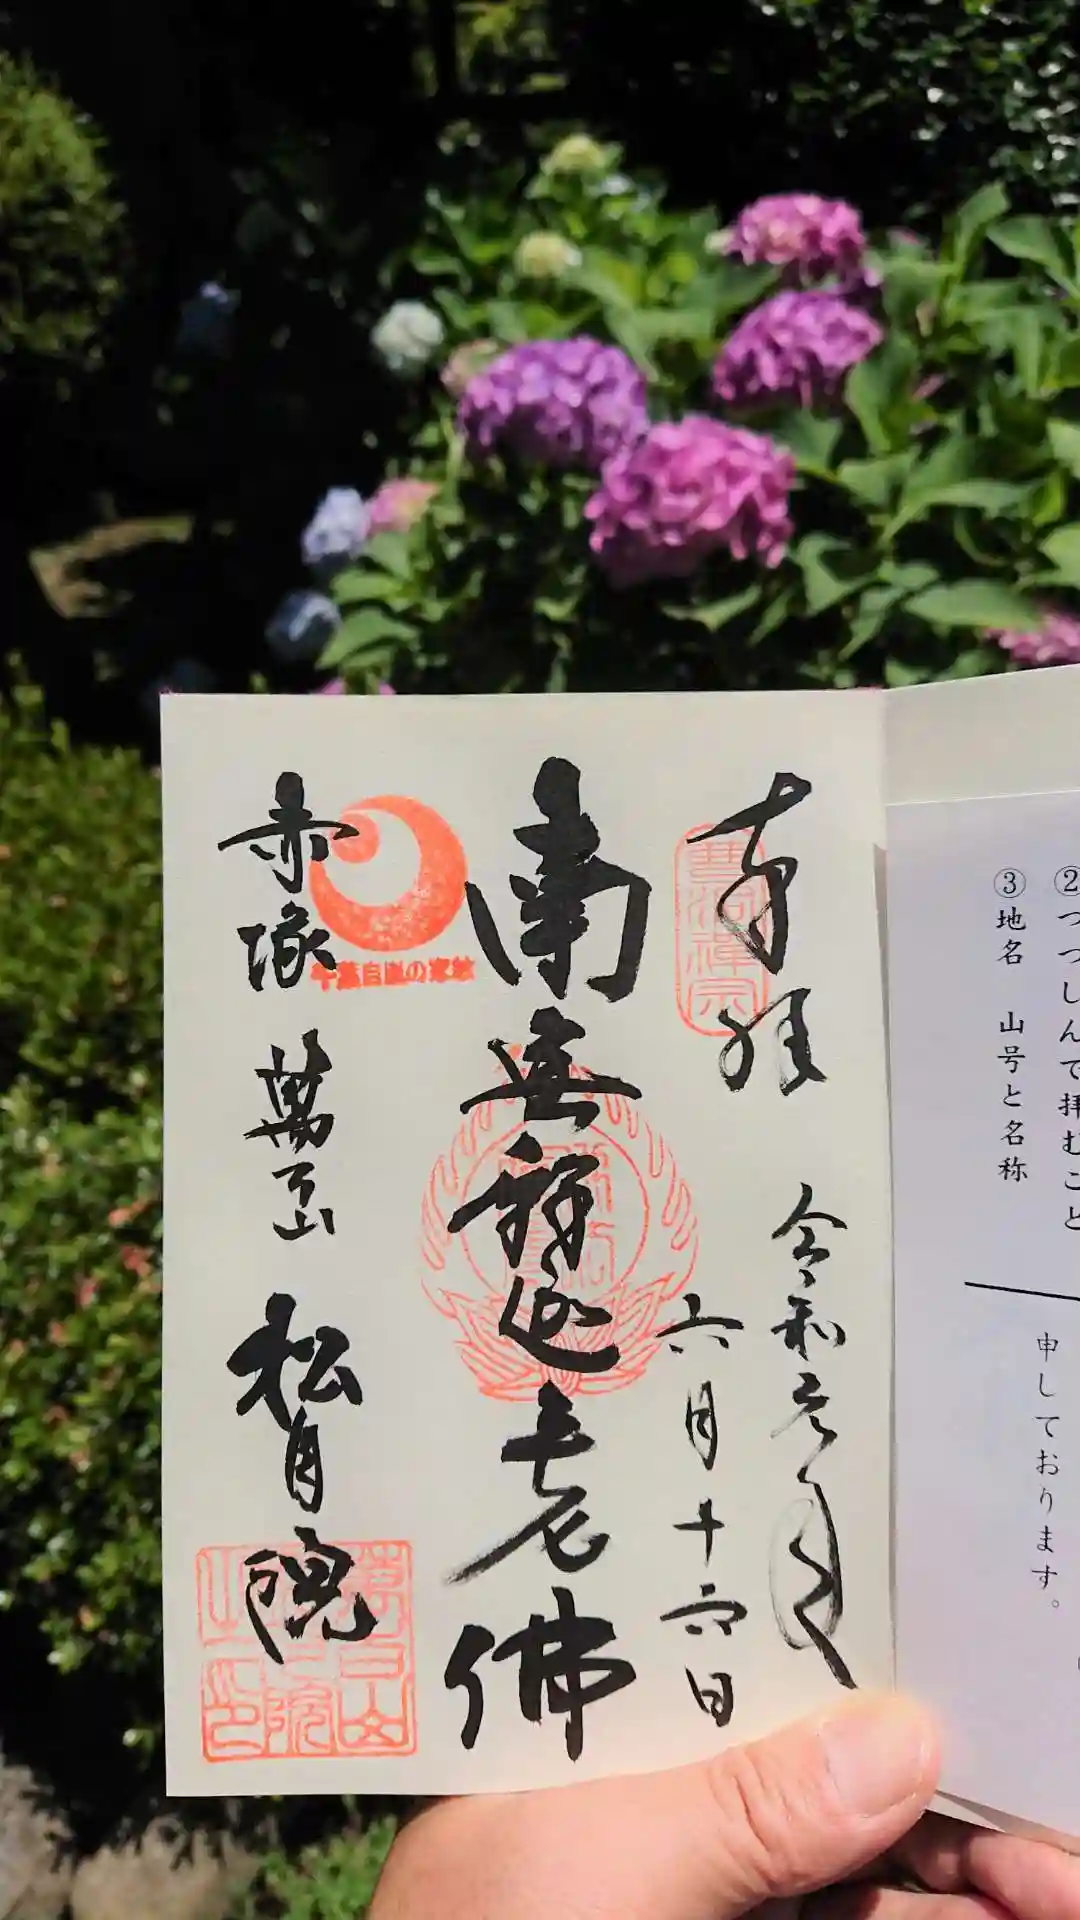 ②つつしんで拝むこと
③地名 山号と名称
申しております。
奉拝
曹洞禅宗
令和元年
六月十六日
南無釋迦老佛
赤塚 萬吉山 松月院
千葉自胤の家紋